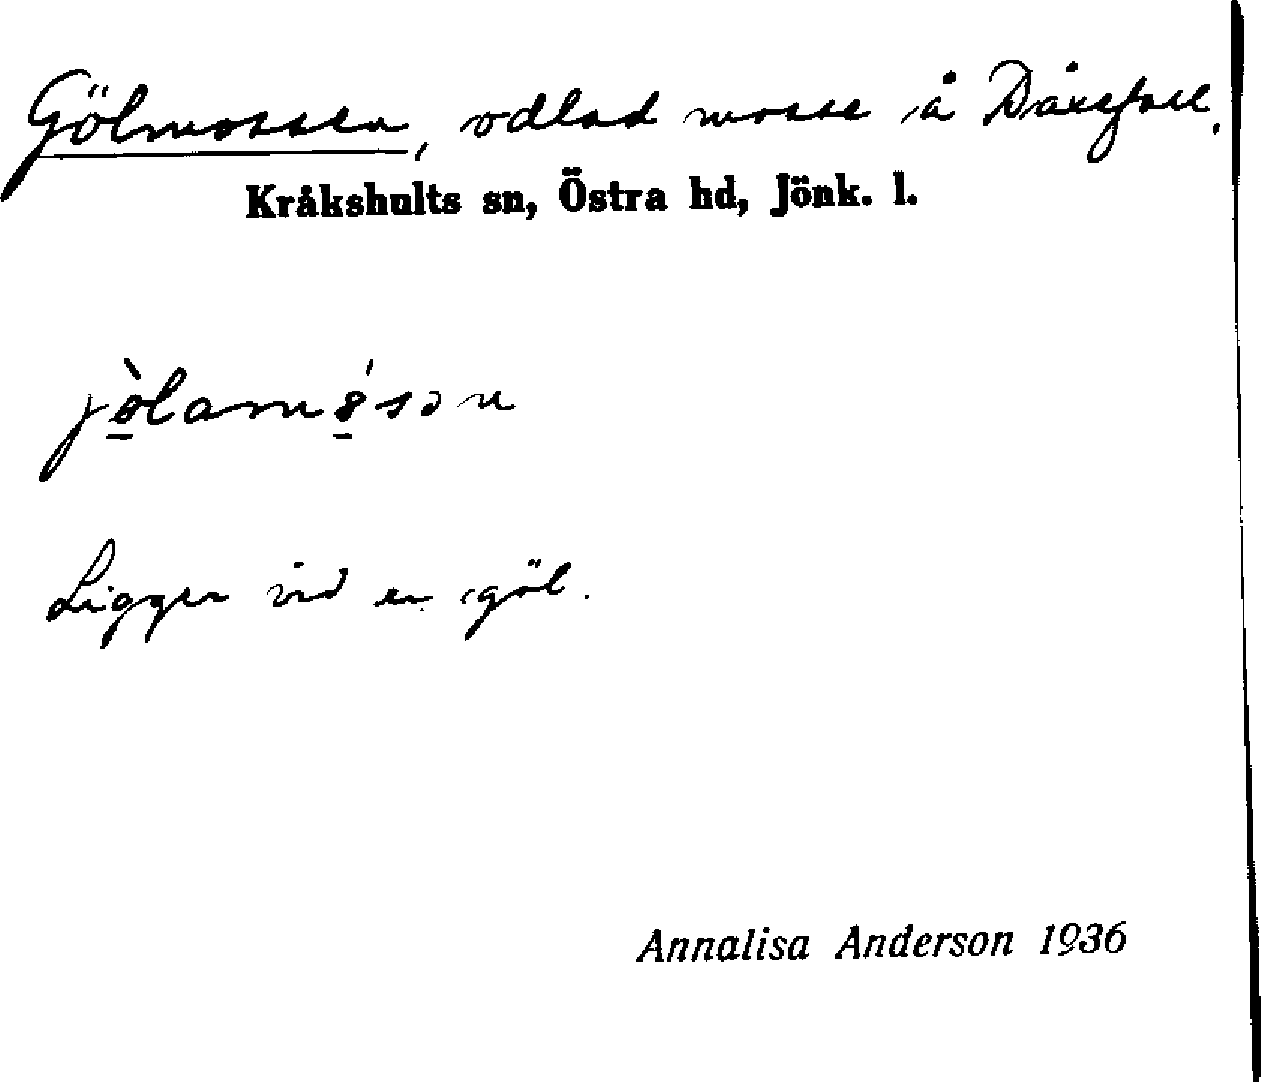 Gölmossen, odlad mosse å
Kråkshults sn, Östra hd, Jönk. l.
Ligger vid en göl.
Annalisa Anderson 1936